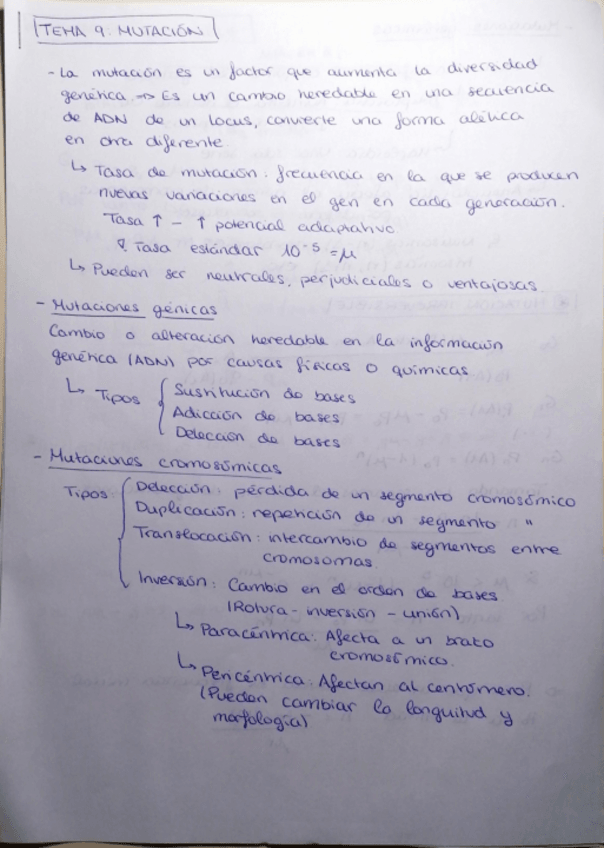 TEMA 9: MUTACIÓN
- La mutación es un factor que aumenta la diversidad
genética → Es un cambio heredable en una secuencia
de ADN de un locus, convierte una forma alélica
en otra diferente.
↳ Tasa de mutación: frecuencia en la que se producen
nuevas variaciones en el gen en cada generación.
Tasa ↑ - ↑ potencial adaptativo
Tasa estándar 10⁻⁵ = μ
↳ Pueden ser neutrales, perjudiciales o ventajosas.
- Mutaciones génicas
Cambio o alteración heredable en la información
genética (ADN) por causas físicas o químicas
↳ Tipos { Sustitución de bases
Adicción de bases
Delección de bases
- Mutaciones cromosómicas
Tipos { Delección: pérdida de un segmento cromosómico
Duplicación: repetición de un segmento "
Translocación: intercambio de segmentos entre
cromosomas.
Inversión: Cambio en el orden de bases
(Rotura - inversión - unión)
↳ Paracéntrica: Afecta a un brazo
cromosómico.
↳ Pericéntrica: Afectan al centrómero.
(Pueden cambiar la longuitud y
morfología)